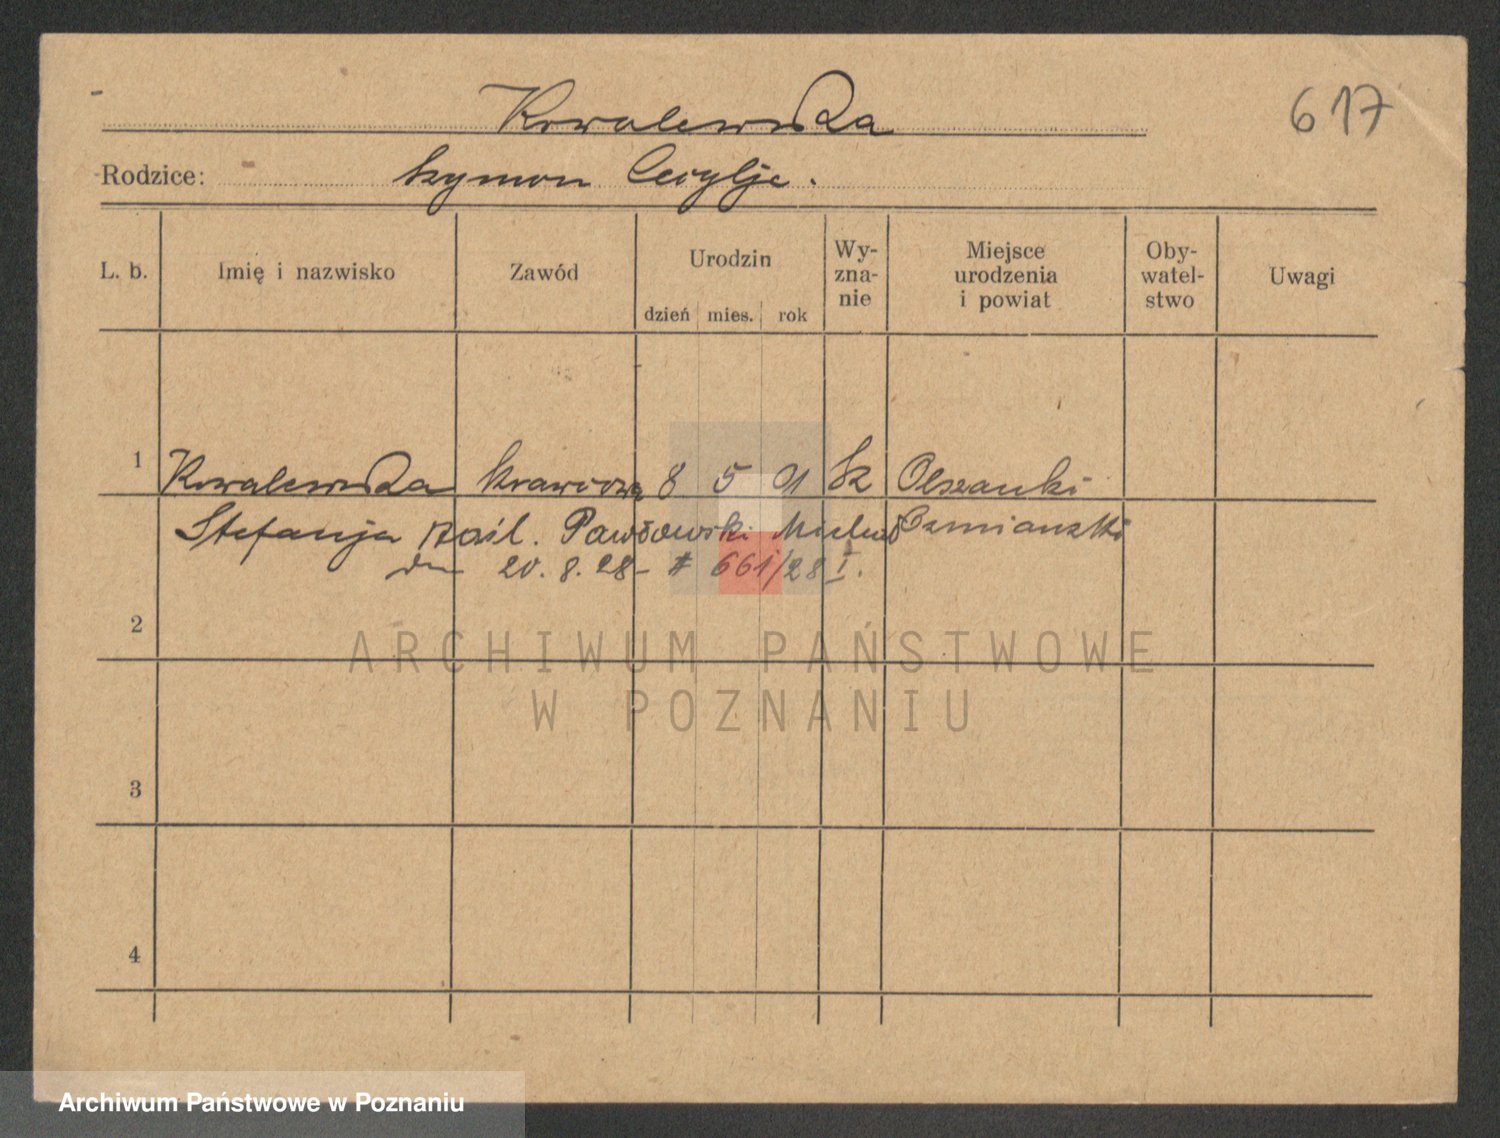 Kowalewska
617
Rodzice: Szymon Cecylje.
L. b.
Imię i nazwisko
Zawód
Urodzin
dzień mies. rok
Wy-
zna-
nie
Miejsce
urodzenia
i powiat
Oby-
watel-
stwo
Uwagi
1 Kowalewska krawcowa 8 5 91 Olszanki
Stefanja zaśl. Pawłowski
20. 8. 28 - # 661/28 I.
2
3
4
ARCHIWUM PAŃSTWOWE
W POZNANIU
Archiwum Państwowe w Poznaniu